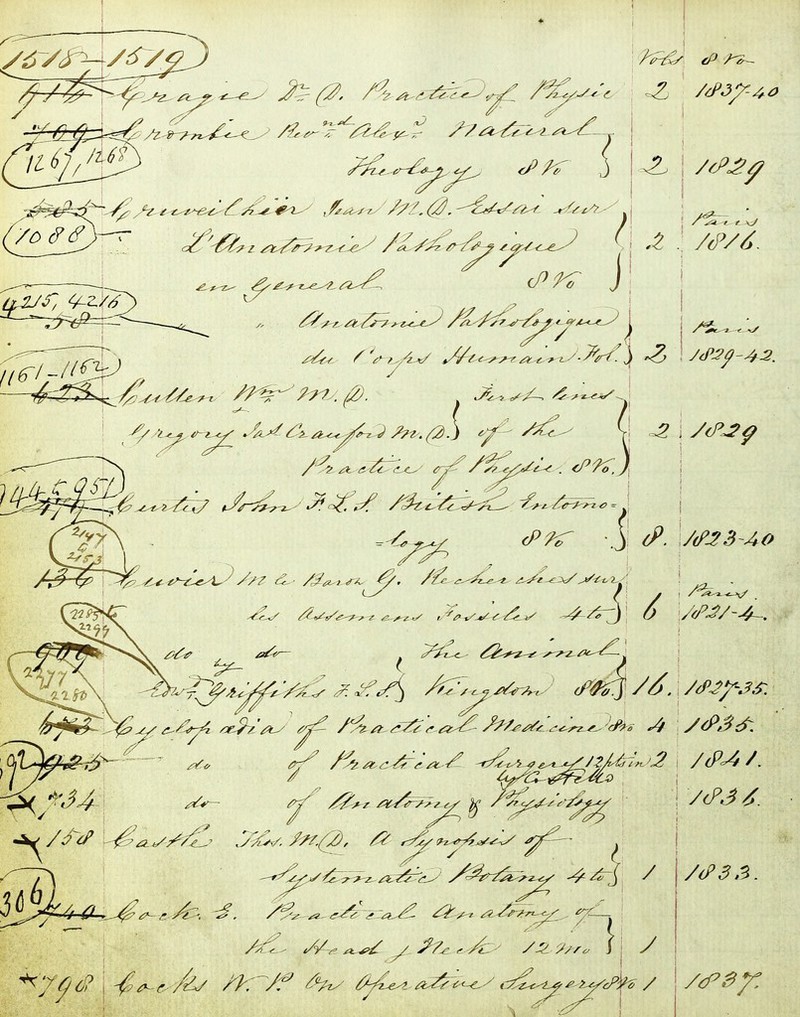 1518-1519 Vols 8vo
916 Cragie Dr. D. Practice of Physic 2 1837-40
709 Crombie Revnd Alexr. Natural
1267, 1268 Theology 8vo 2 1829
585 Cruveilhier Jean M.D. Essai sur
1088 L'Anatomie Pathologique 2 Paris 1816.
en General 8vo
4215, 4216
58 " " Anatomie Pathologique Paris
du Corps Humain. Fol. 2 1829-42.
1161-1162
623 Cullen Wm M.D. First lines
Gregory Jas Crauford M.D. of the 2 1829
Practice of Physic. 8vo.
951
Curtis John F.L.S. British Entomo=
2147 to 2153 =logy 8vo 8. 1823-40
136 Cuvier M le Baron G. Recherches sur Paris.
2285 to 2299 les Ossemens Fossiles 4to 6 1821-4.
909 do do The Animal
2277 2280 by Edwd. Griffiths F.L.S. Kingdom 8vo. 16. 1827-35.
673 Cyclopædia of Practical Medicine 8vo 4 1835.
925 do of Practical Surgery 12 pts in 2 1841.
by C.
x 734 do of Anatomy & Physiology 1836.
x 158 Castle Thos. M.D. A Synopsis of
Systematic Botany 4to 1 1833.
306
740 Cock. E. Practical Anatomy of
the Head & Neck 12mo 1
x 798 Cocks W. P. On Operative Surgery 8vo 1 1837.